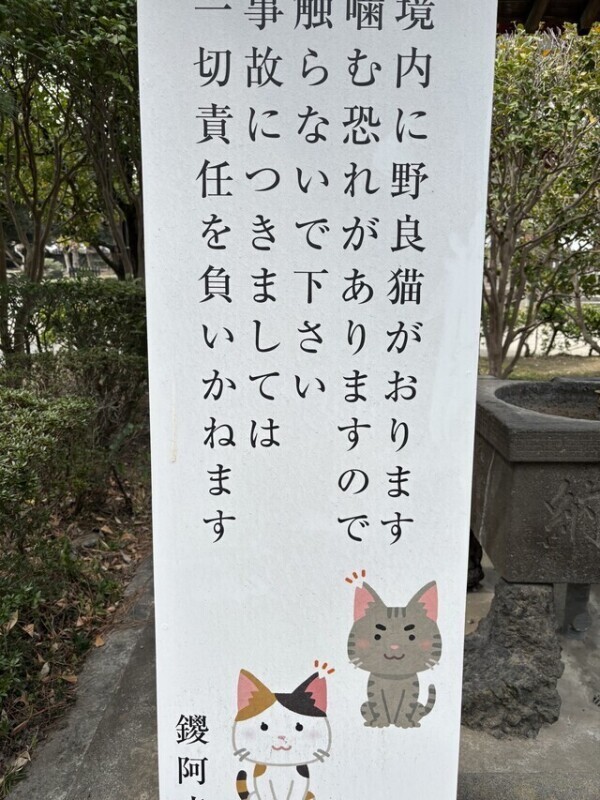 境内に野良猫がおります
噛む恐れがありますので
触らないで下さい
事故につきましては
一切責任を負いかねます
鑁阿